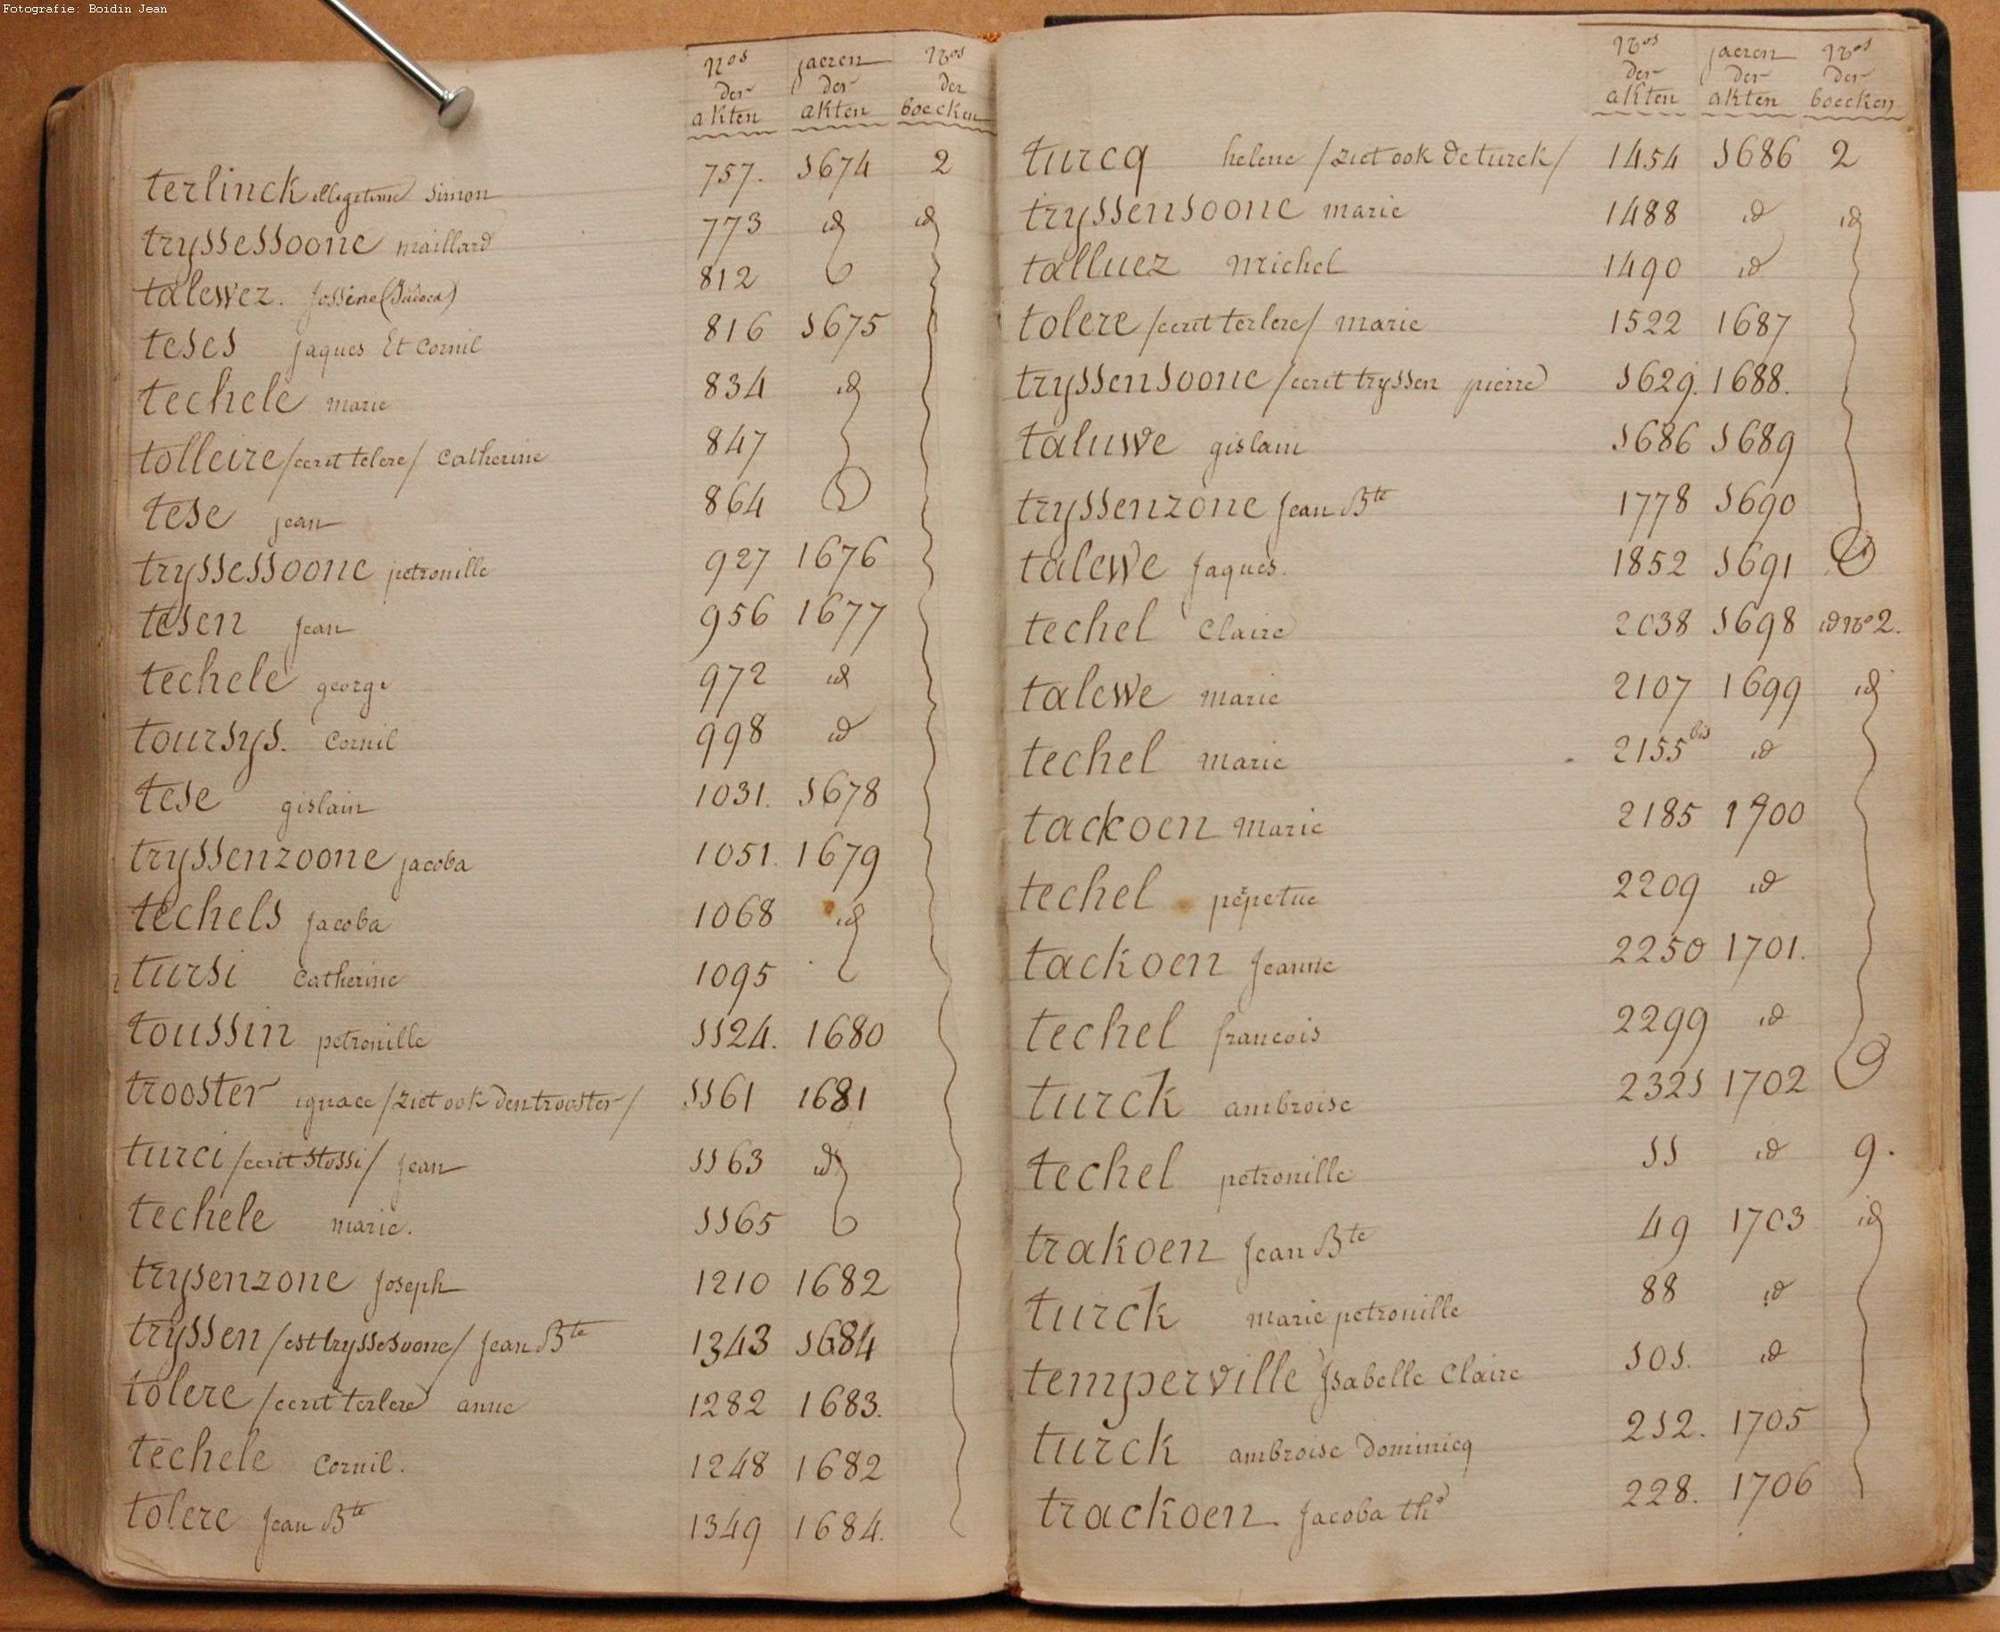 Fotografie: Boidin Jean
Nos der akten jaeren der akten Nos der boecken
terlinck illegetime Simon 757. 1674 2
tryssessoone maillard 773 id id
talewez. Jossine (Judoca) 812
teses Jaques Et Cornil 816 1675
techele marie 834 id
tolleire /ecrit telere/ Catherine 847
tese jean 864
tryssessoone petronille 927 1676
tesen Jean 956 1677
techele george 972 id
toursys. Cornil 998 id
tese gislain 1031. 1678
tryssenzoone jacoba 1051. 1679
techels Jacoba 1068 id
tursi Catherine 1095
toussin petronille 1124. 1680
trooster ignace /ziet ook Dentrooster/ 1161 1681
turci /ecrit Stossi/ Jean 1163 id
techele marie. 1165
trysenzone Joseph 1210 1682
tryssen /est tryssesoone/ Jean Bte 1343 1684
tolere /ecrit terlere/ anne 1282 1683.
techele Cornil. 1248 1682
tolere Jean Bte 1349 1684.
Nos der akten jaeren der akten Nos der boecken
turcq helene /ziet ook De turck/ 1454 1686 2
tryssensoone marie 1488 id id
talluez Michel 1490 id
tolere /ecrit terlere/ Marie 1522 1687
tryssensoone /ecrit tryssen pierre 1629. 1688.
taluwe gislain 1686 1689
tryssenzone Jean Bte 1778 1690
talewe Jaques. 1852 1691
techel Claire 2038 1698 id No 2.
talewe marie 2107 1699 id
techel marie 2155 bis id
tackoen Marie 2185 1700
techel pépetue 2209 id
tackoen Jeanne 2250 1701.
techel francois 2299 id
turck ambroise 2321 1702
techel petronille 11 id 9.
trakoen Jean Bte 49 1703 id
turck marie petronille 88 id
temperville Isabelle Claire 101. id
turck ambroise Dominicq 212. 1705
trackoen Jacoba the 228. 1706